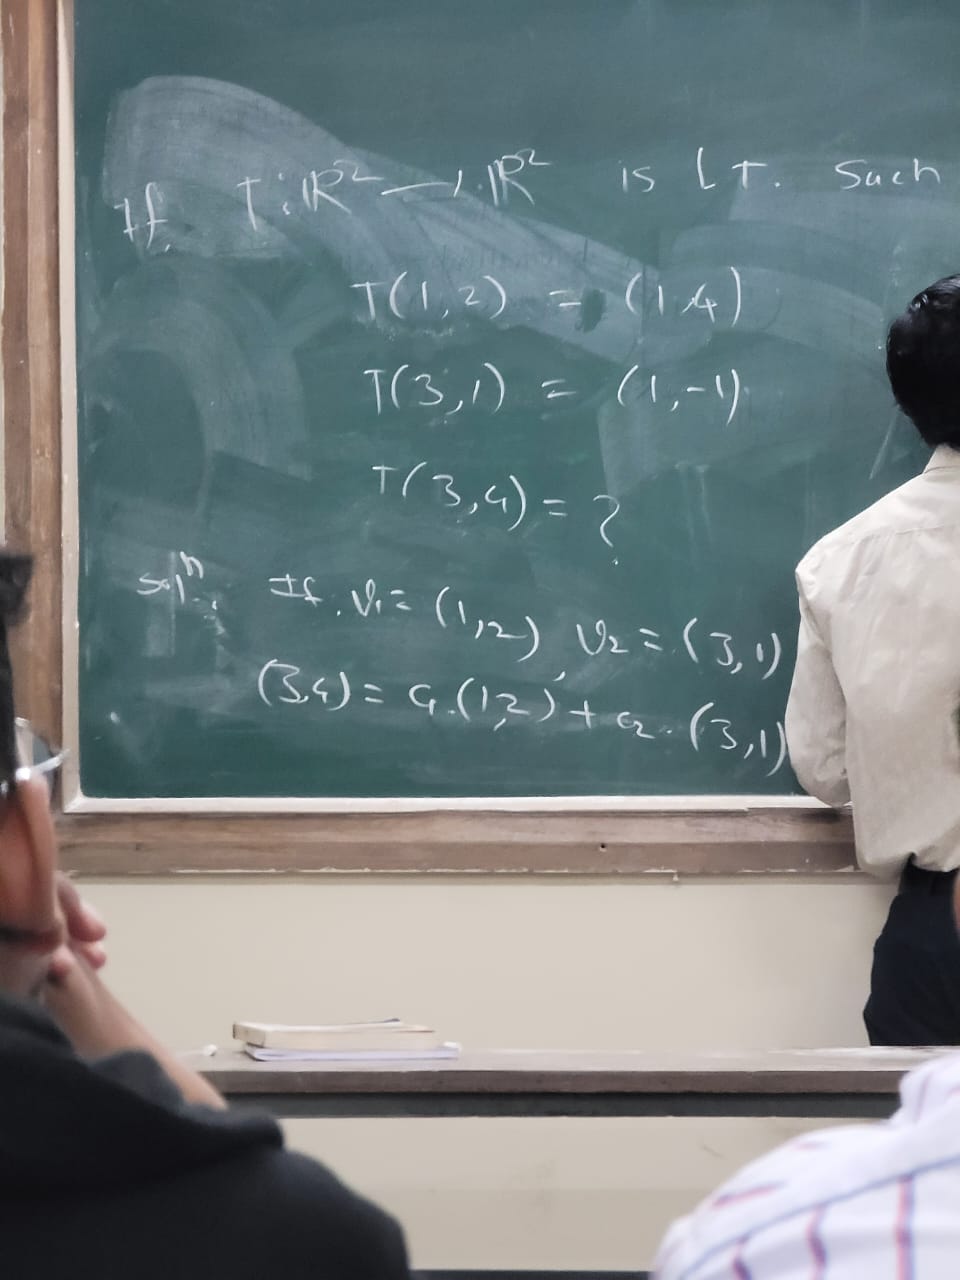 If T: ℝ² → ℝ² is LT. Such
T(1,2) = (1,4)
T(3,1) = (1,-1)
T(3,4) = ?
Solⁿ: If. v₁ = (1,2), v₂ = (3,1)
(3,4) = c₁.(1,2) + c₂.(3,1)